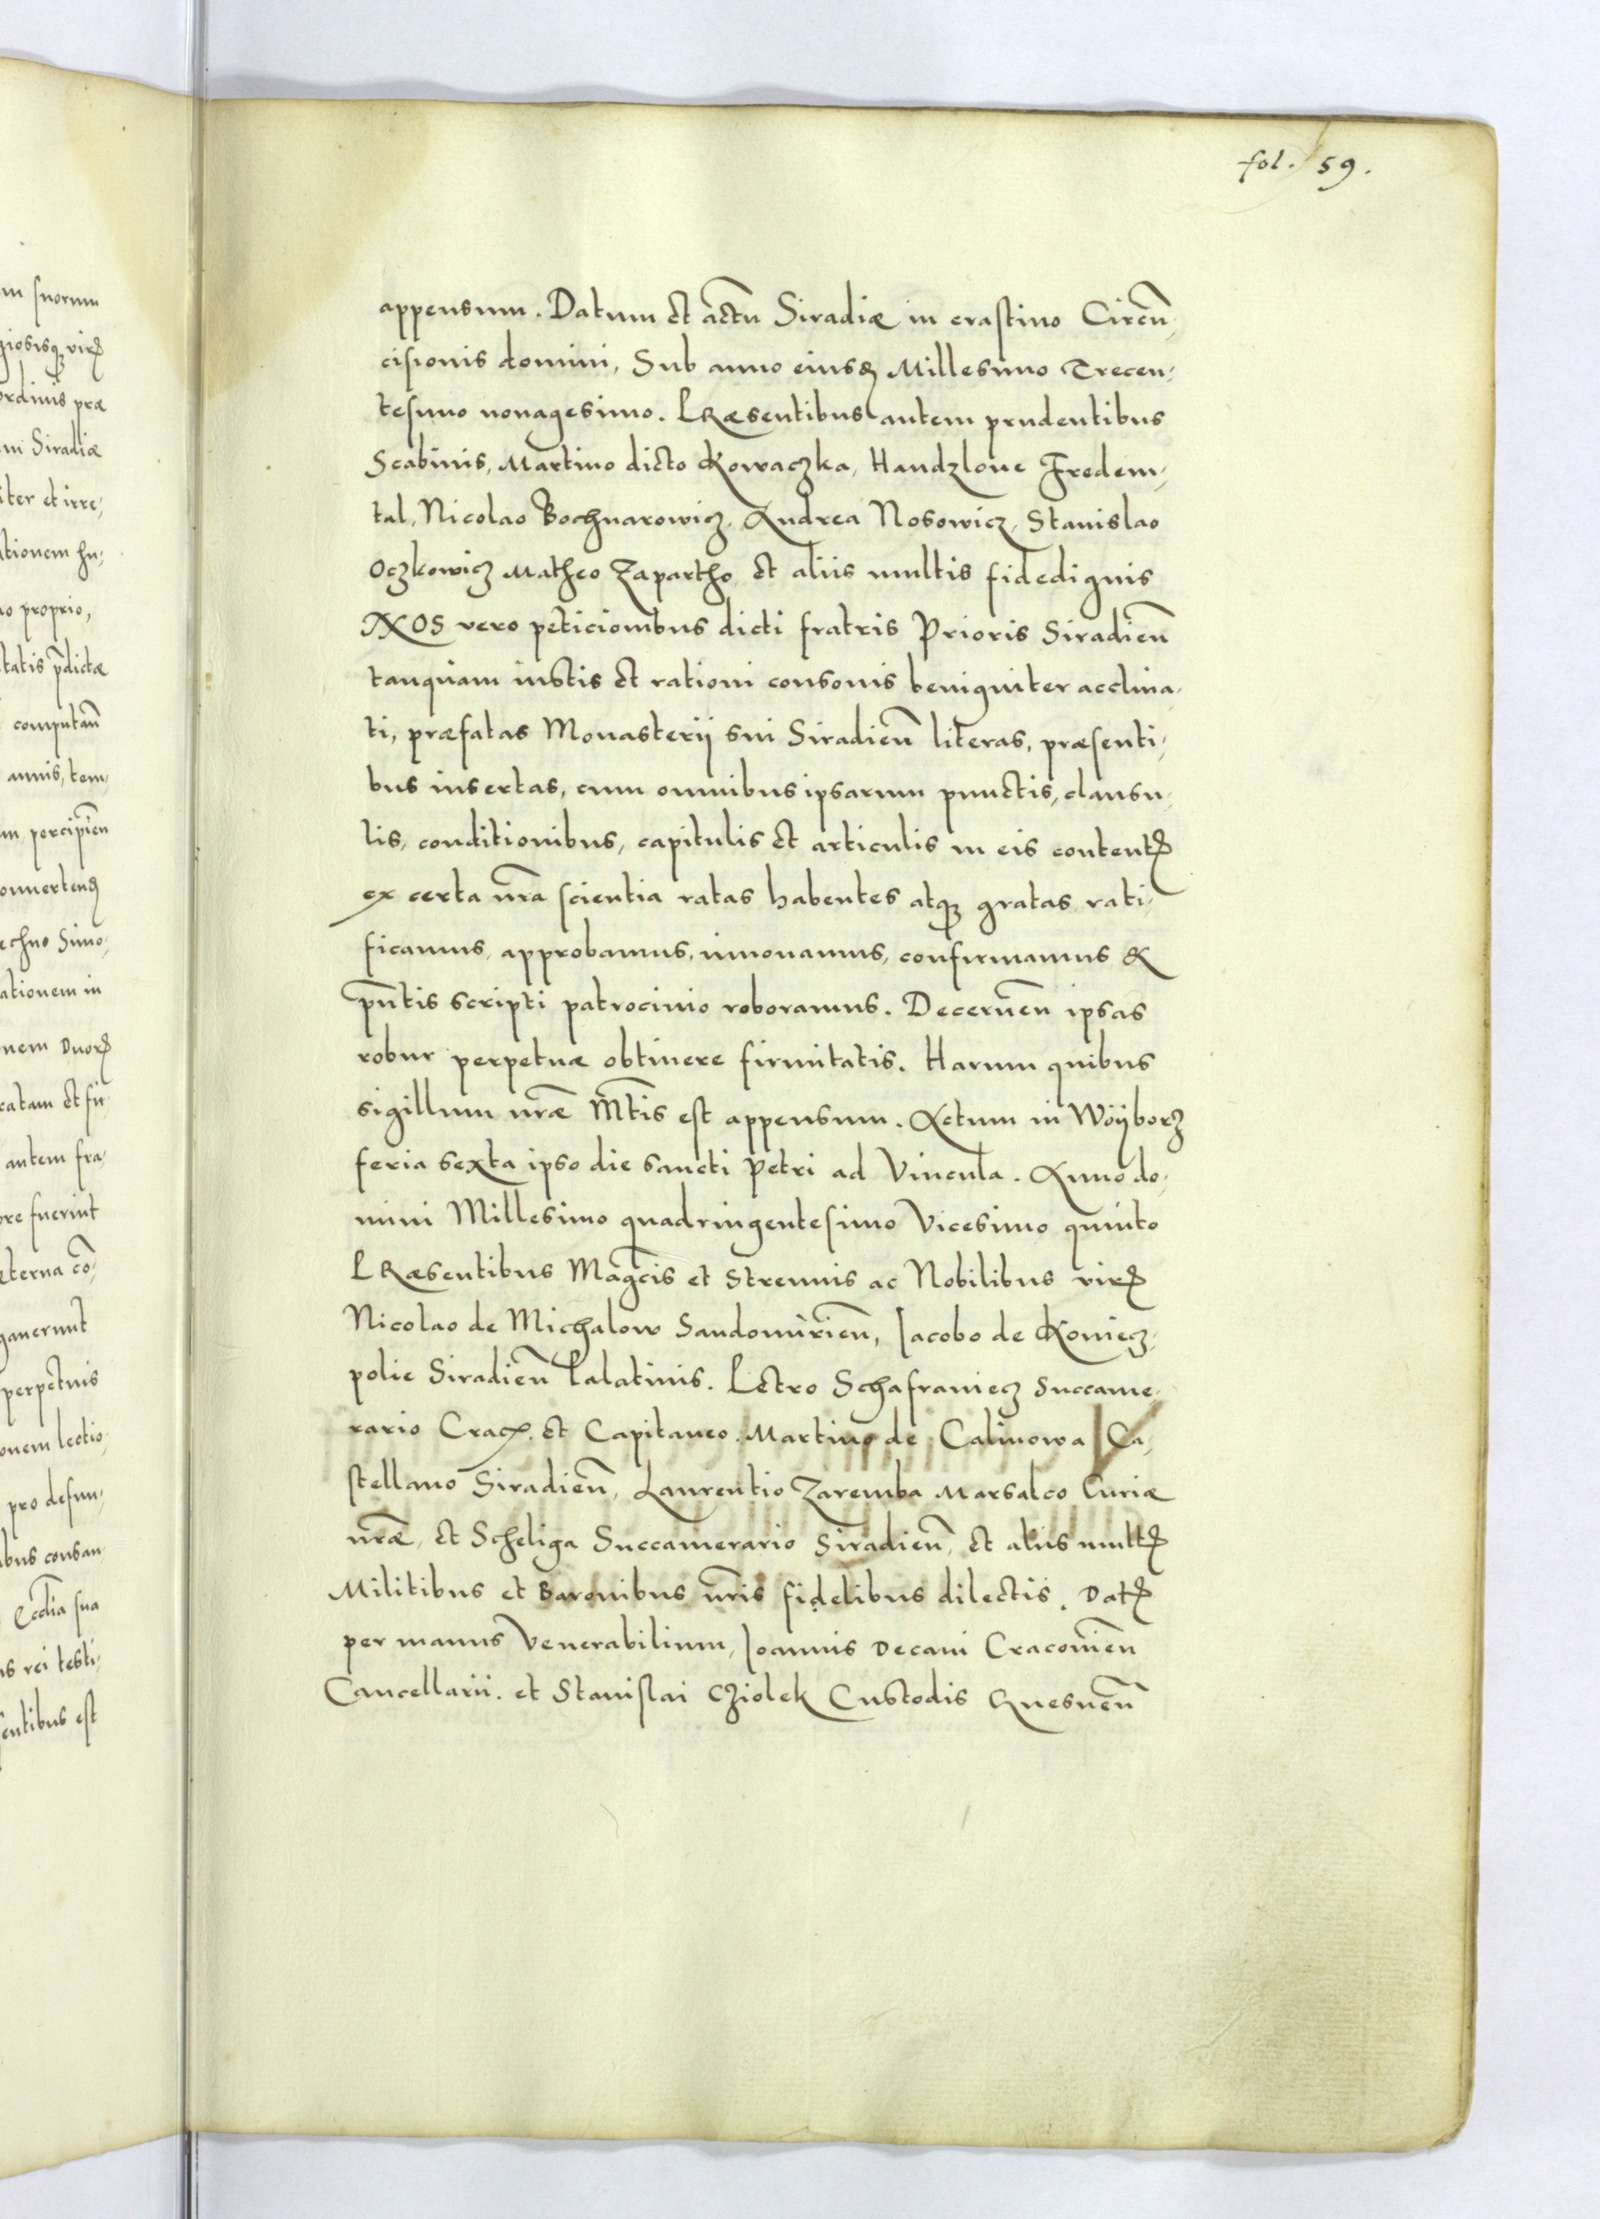 fol. 59.
appensum. Datum et actũ Siradiæ in crastino Circũ,
cisionis domini, Sub anno eiusdẽ Millesimo Trecen,
tesimo nonagesimo. PRæsentibus autem prudentibus
Scabinis, Martino dicto Kowaczka, Handzlone Fredem,
tal, Nicolao Bochnarowicz, Andrea Nosowicz, Stanislao
Oczkowicz Matheo Zapartho et aliis multis fidedignis
NOS vero peticionibus dicti fratris Prioris Siradieñ
tanquam iustis et rationi consonis benigniter acclina,
ti, præfatas Monasterij sui Siradieñ literas, præsenti,
bus insertas, cum omnibus ipsarum punctis, clausu,
lis, conditionibus, capitulis et articulis in eis contentꝭ
ex certa nr̃a scientia ratas habentes atqꝫ gratas rati,
ficamus, approbamus, innovamus, confirmamus &
pñtis scripti patrocinio roboramus. Decerneñ ipsas
robur perpetuæ obtinere firmitatis. Harum quibus
sigillum nr̃æ M̃tis est appensum. Actum in Wöÿborz
feria sexta ipso die sancti Petri ad Vincula. Anno do,
mini Millesimo quadringentesimo Vicesimo quinto
PRæsentibus Magc̃is et Strenuis ac Nobilibus virꝭ
Nicolao de Michalow Sandomirieñ, Jacobo de Koniecz,
polie Siradieñ Palatinis. Petro Schafraniecz Succame,
rario Cracꝭ. et Capitaneo. Martino de Calinowa Ca,
stellano Siradieñ, Laurentio Zaremba Marsalco Curiæ
nr̃æ, et Scheliga Succamerario Siradieñ, et aliis multꝭ
Militibus et Baronibus nr̃is fidelibus dilectis. Datꝭ
per manus Venerabilium, Joannis Decani Cracovieñ
Cancellarii. et Stanislai Cziolek Custodis Gnesneñ